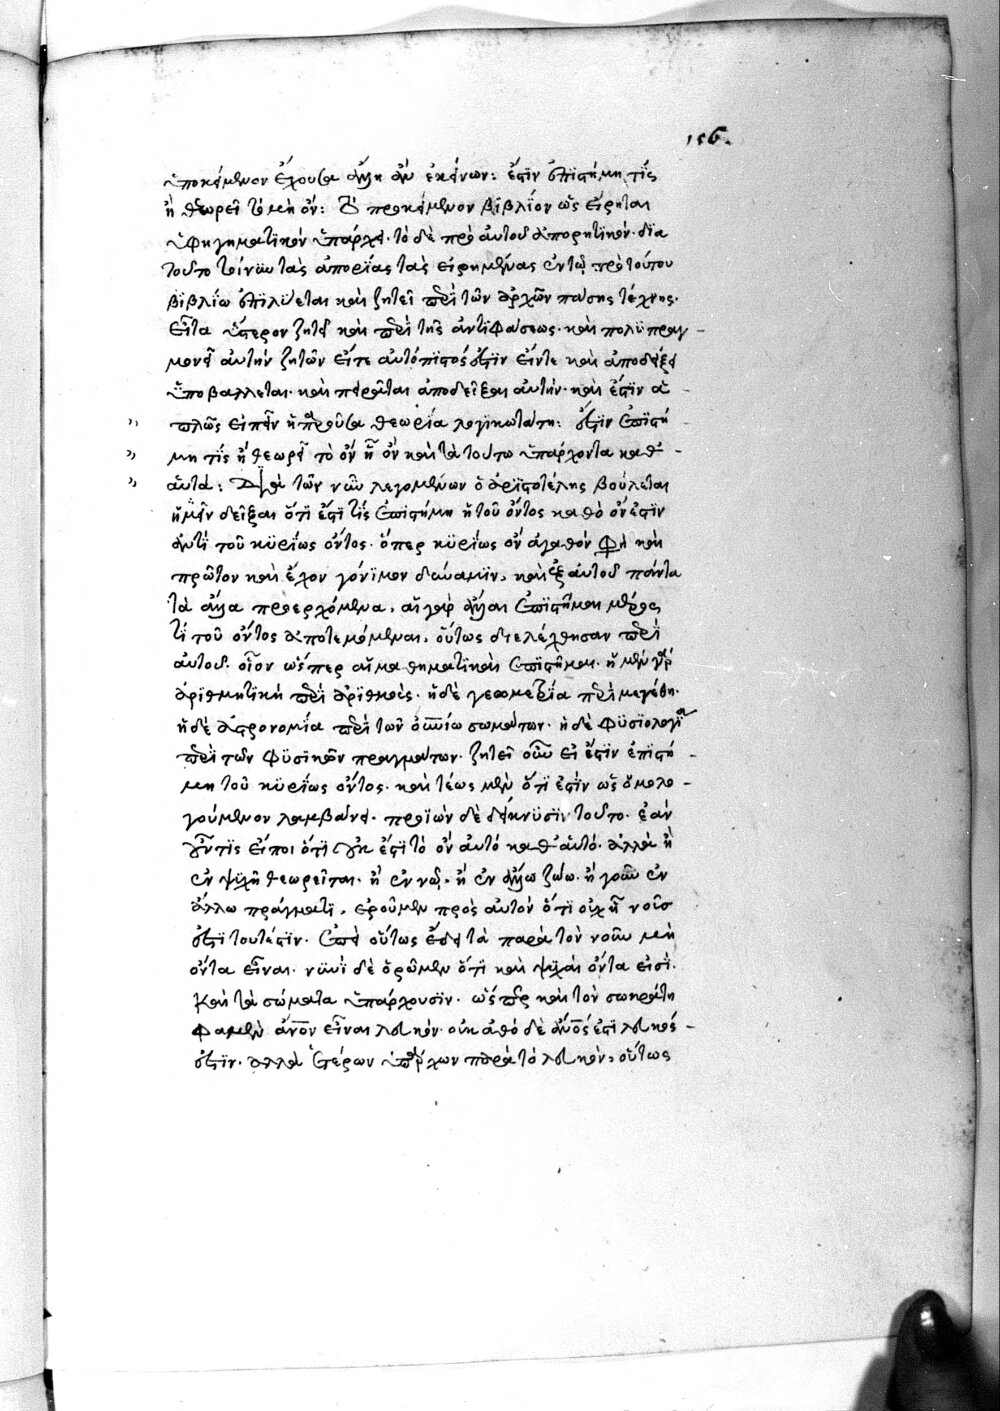 156.
ὑποκείμενον ἔχουσα ἄλλη ἂν ἐκείνων: ἔστιν ἐπιστήμη τίς
ἣ θεωρεῖ τὸ μὴ ὄν: Τὸ προκείμενον βιβλίον ὡς εἴρηται
ὑφηγηματικὸν ὑπάρχει· τὸ δὲ πρὸ αὐτοῦ ἀπορητικόν· διὰ
τοῦτο τοίνυν τὰς ἀπορίας τὰς εἰρημένας ἐν τῷ πρὸ τούτου
βιβλίω ἐπιλύεται καὶ ζητεῖ περὶ τῶν ἀρχῶν πάσης τέχνης·
εἶτα ὕστερον ζητεῖ καὶ περὶ τῆς ἀντιφάσεως· καὶ πολυπραγ-
μονεῖ αὐτὴν ζητῶν εἴτε αὐτόπιστός ἐστιν εἴντε καὶ ἀποδείξει
ὑποβάλλεται· καὶ πειρᾶται ἀποδεῖξαι αὐτήν· καὶ ἔστιν ἁ-
πλῶς εἰπεῖν ἡ παροῦσα θεωρία λογικωτάτη: ἔστιν ἐπιστή-
μη τίς ἣ θεωρεῖ τὸ ὂν ἧ ὂν καὶ τὰ τούτω ὑπάρχοντα καθ᾽ -
αὑτά: Διὰ τῶν νῦν λεγομένων ὁ ἀριστοτέλης βούλεται
ἡμῖν δεῖξαι ὅτι ἐστὶ τίς ἐπιστήμη ἡ τοῦ ὄντος καθὸ ὄν ἐστιν
ἀντὶ τοῦ κυρίως ὄντος· ὅπερ κυρίως ὂν ἀγαθόν φησι καὶ
πρῶτον καὶ ἔχον γόνιμον δύναμιν, καὶ ἐξ αὐτοῦ πάντα
τὰ ἄλλα προερχόμενα, αἱ γὰρ ἄλλαι ἐπιστῆμαι μέρος
τί τοῦ ὄντος ἀποτεμόμεναι, οὕτως διελέχθησαν περὶ
αὐτοῦ· οἷον ὥσπερ αἱ μαθηματικαὶ ἐπιστῆμαι· ἡ μὲν γὰρ
ἀριθμητικὴ περὶ ἀριθμούς· ἡ δὲ γεωμετρία περὶ μεγέθη·
ἡ δὲ ἀστρονομία περὶ τῶν οὐνίω σωμάτων· ἡ δὲ φυσιολογία
περὶ τῶν φυσικῶν πραγμάτων· ζητεῖ οὖν εἰ ἔστιν ἐπιστή-
μη τοῦ κυρίως ὄντος· καὶ τέως μὲν ὅτι ἐστὶν ὡς ὁμολο-
γούμενον λαμβάνει· προϊὼν δὲ δείκνυσιν τοῦτο· ἐὰν
γὰρ τις εἴποι ὅτι οὐκ ἔστι τὸ ὂν αὐτὸ καθ᾽ αὑτό· ἀλλὰ ἢ
ἐν ψυχῆ θεωρεῖται· ἢ ἐν νῷ, ἢ ἐν ἄλλω ζώω· ἢ γοῦν ἐν
ἄλλω πράγματι, ἐροῦμεν πρὸς αὐτὸν ὅτι οὐχ ἧ νοῦς
ἐστὶ τουτέστιν· ἐπεὶ οὕτως ἔδει τὰ παρὰ τὸν νοῦν μὴ
ὄντα εἶναι· νυνὶ δὲ ὁρῶμεν ὅτι καὶ ψυχαὶ ὄντα εἰσί·
καὶ τὰ σώματα ὑπάρχουσιν· ὥσπερ καὶ τὸν σωκράτη
φαμὲν ἄνον εἶναι λευκόν· οὐ καθὸ δὲ ἄνος ἐστὶ λευκός -
ἐστιν· ἀλλὰ ἑτέρων ὑπαρχων παρὰ τὸ λευκὸν, οὕτως